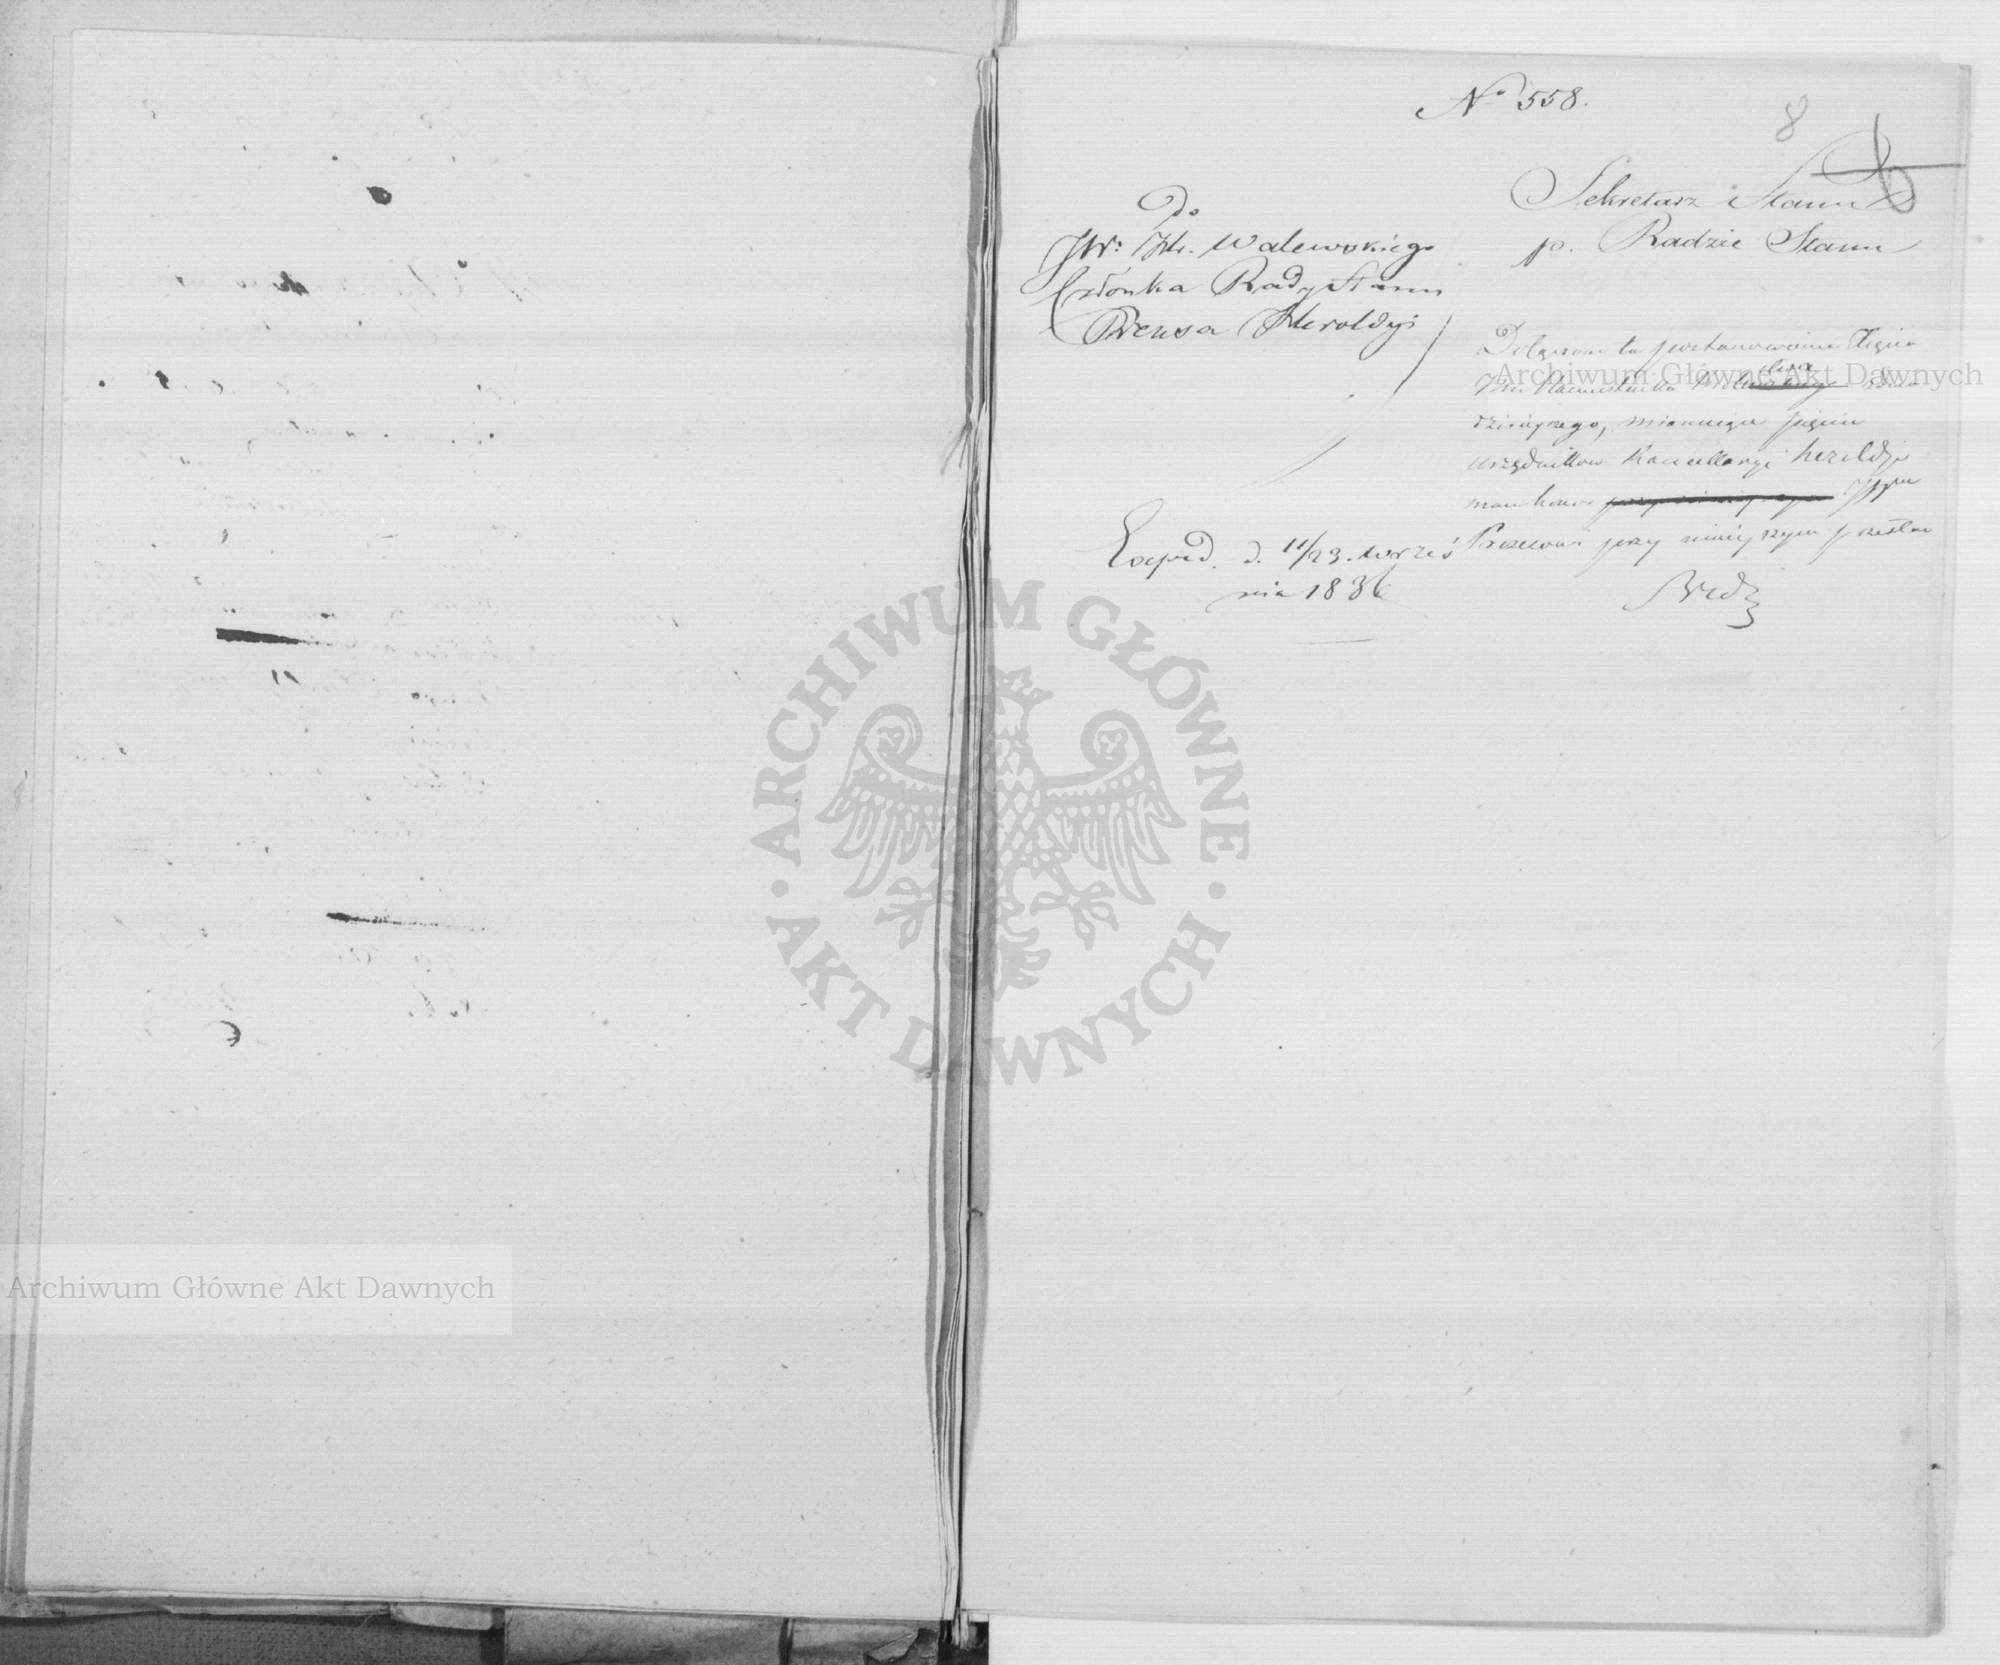 No 558.
8
Sekretarz Stanu
p. Radzie Stanu
Do
JW: Hr. Walewskiego
Członka Rady Stanu
Prezesa Heroldyi
postanowienie Xięcia
Archiwum Główne Akt Dawnych
dzisiejszego, mianujące pięciu
urzędników Kancellaryi heroldyi
mam honor JJWu
Prezesowi przy niniejszym przesłać
Exped. d. 11/23. wrześ
nia 1836
ARCHIWUM GŁÓWNE
AKT DAWNYCH
Archiwum Główne Akt Dawnych